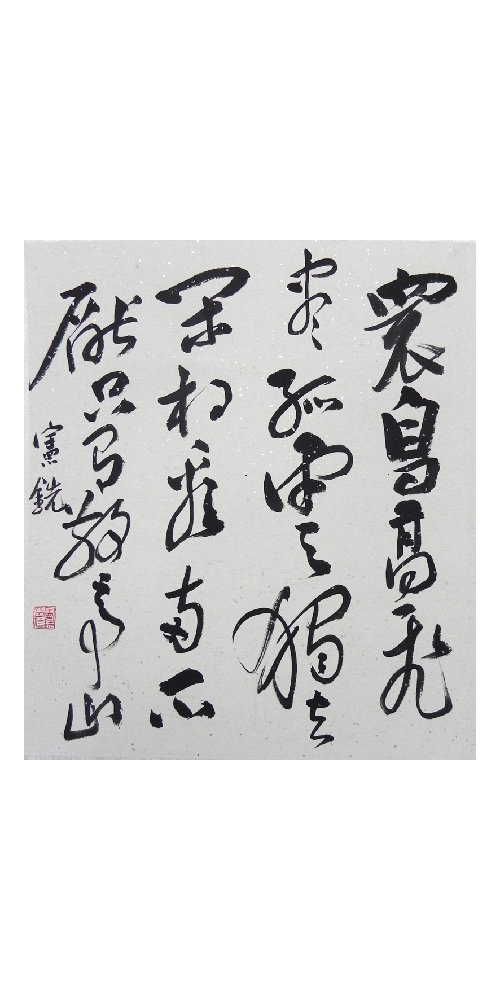 眾鳥高飛
盡孤雲獨去
閑相看兩不
厭只有敬亭山
憲銑